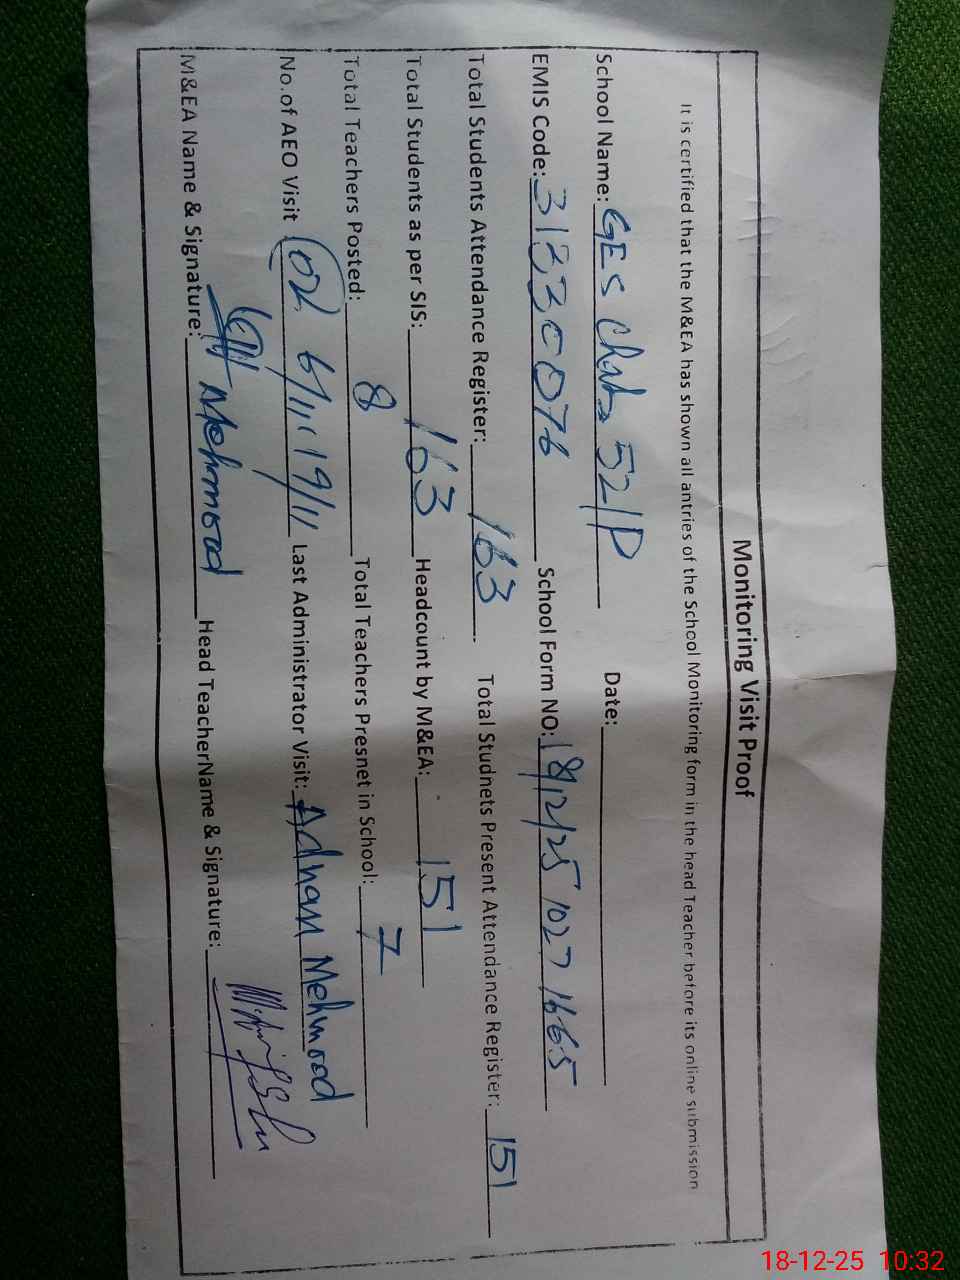 Monitoring Visit Proof
It is certified that the M&EA has shown all antries of the School Monitoring form in the head Teacher before its online submission
School Name: GES Chak 52/P Date:
EMIS Code: 31330076 School Form NO: 18/12/25 1027 1665
Total Students Attendance Register: 163 Total Studnets Present Attendance Register: 151
Total Students as per SIS: 163 Headcount by M&EA: 151
Total Teachers Posted: 8 Total Teachers Presnet in School: 7
No.of AEO Visit (02 6/11, 19/11 Last Administrator Visit: Adnan Mehmood
M&EA Name & Signature: Mehmood Head TeacherName & Signature:
18-12-25 10:32